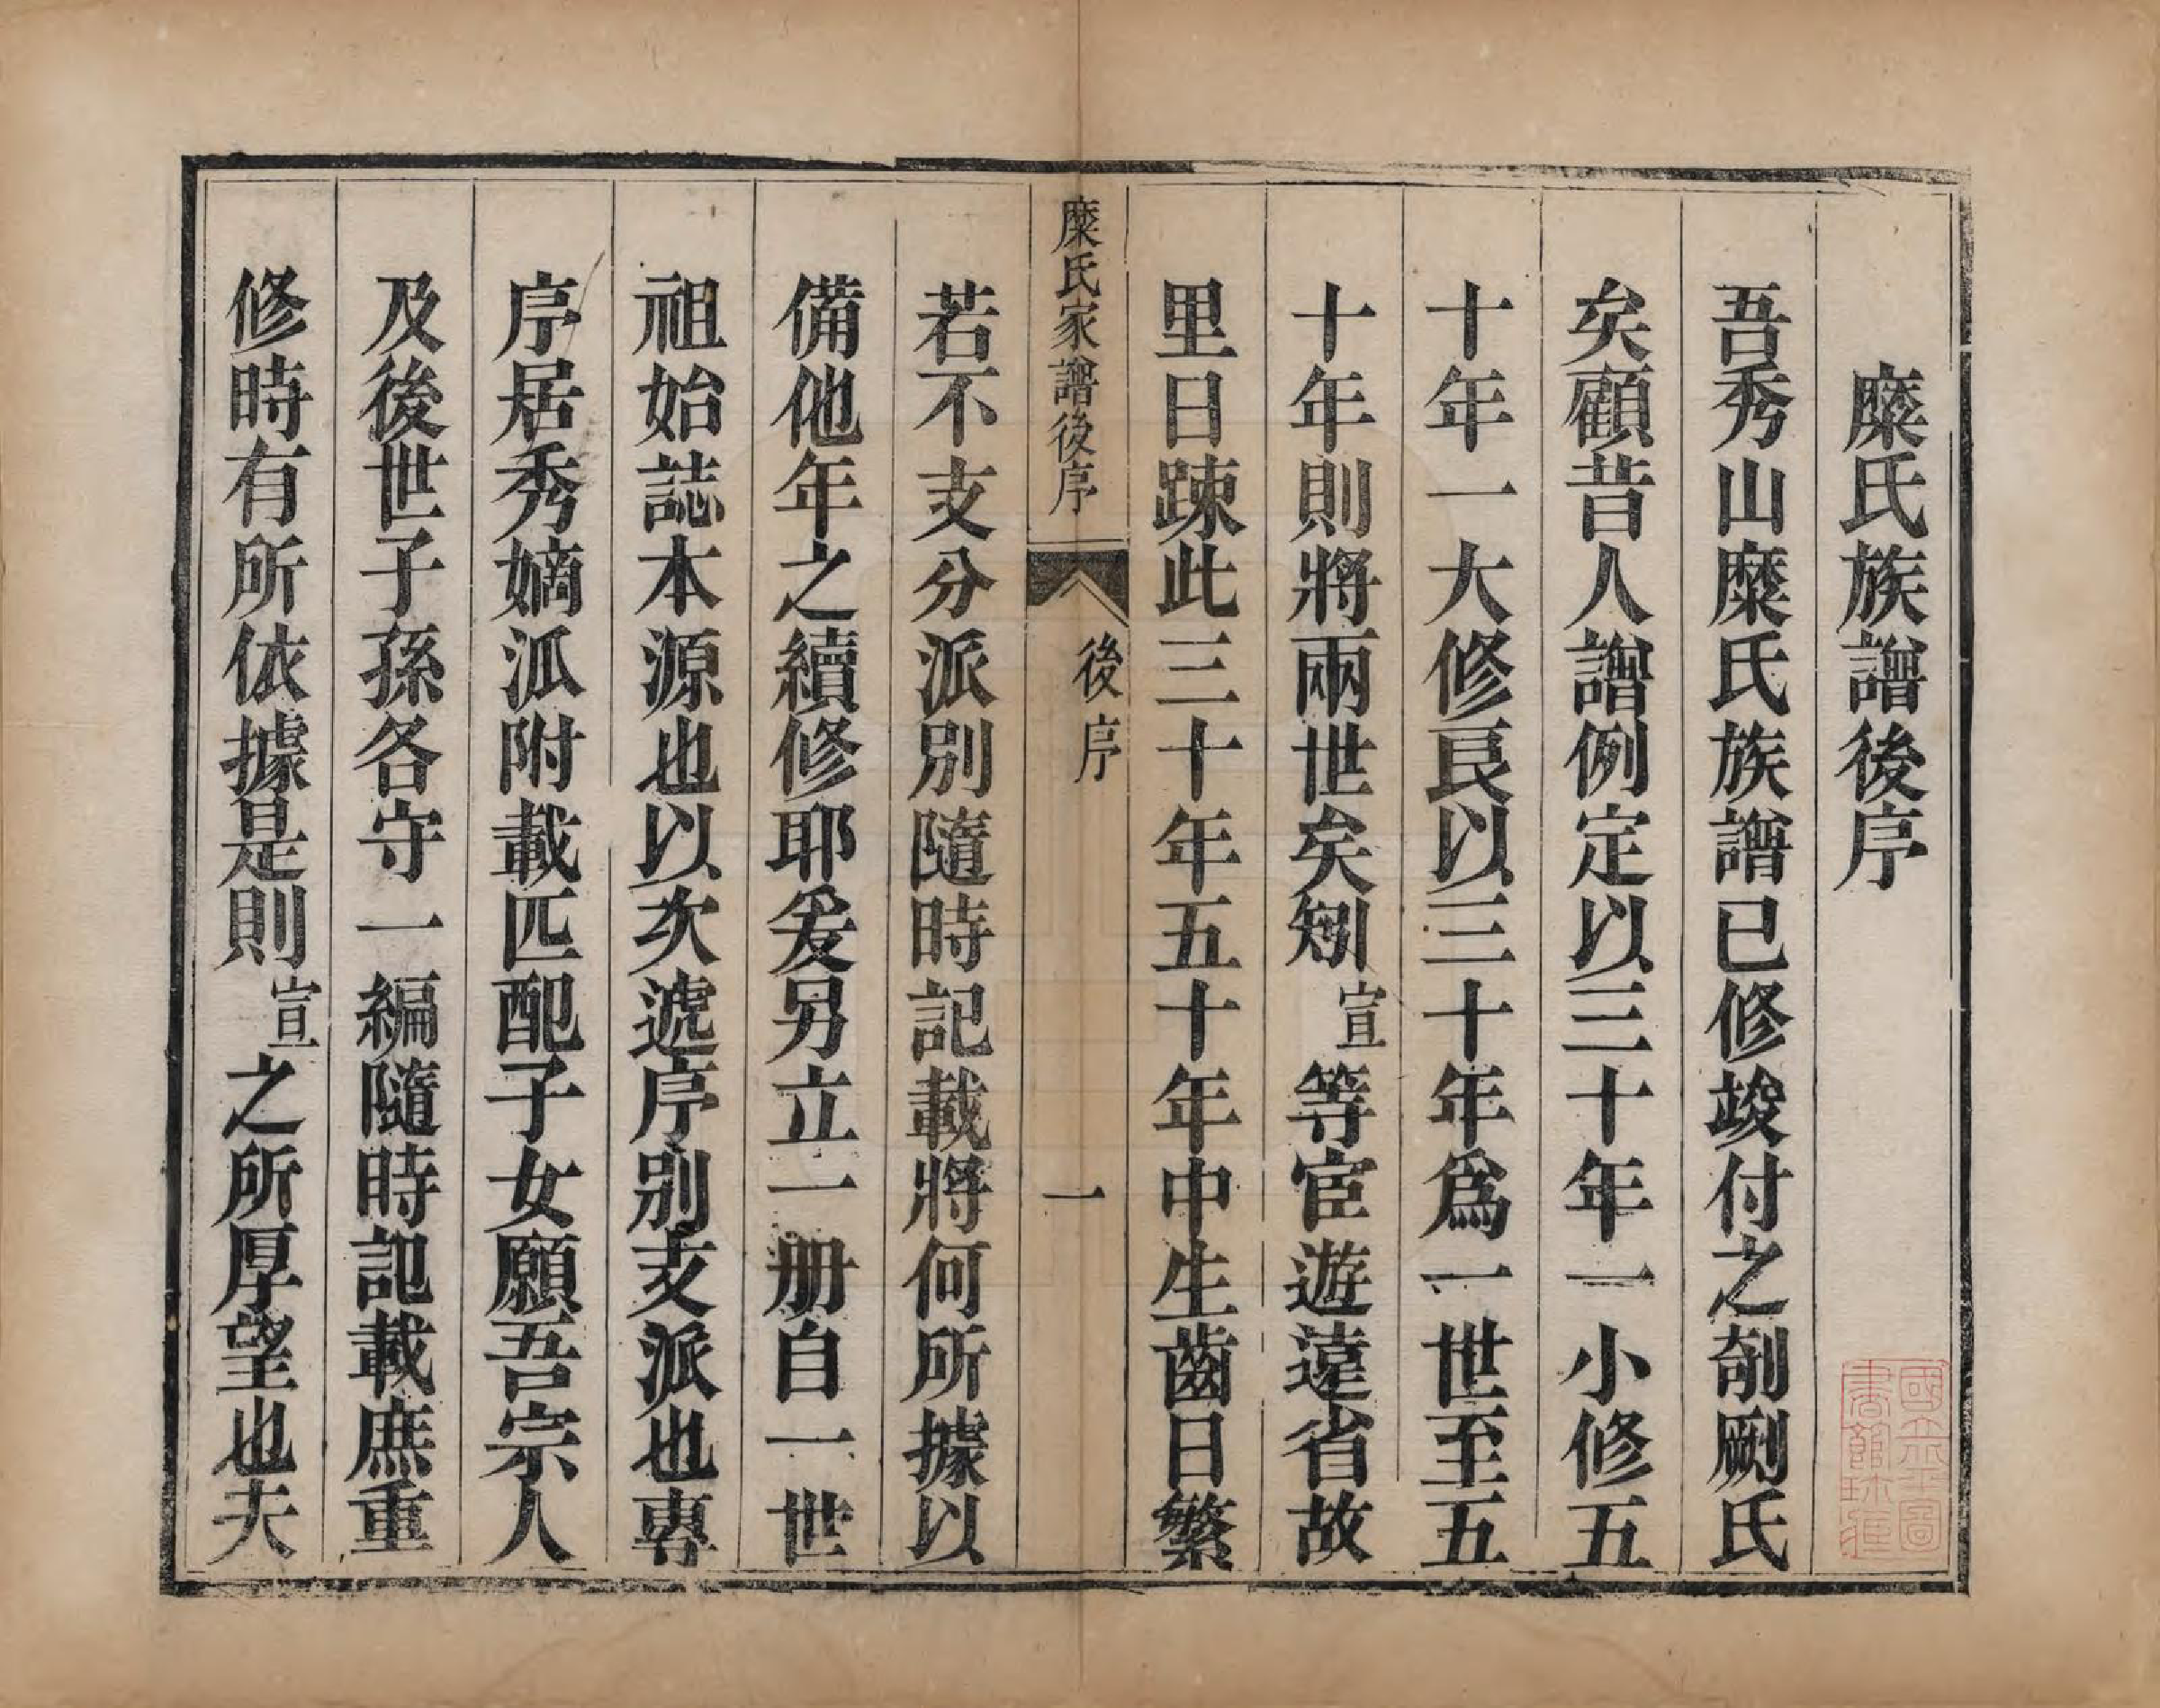 糜氏族譜後序
吾秀山糜氏族譜已修竣付之剞劂氏
矣顧昔人譜例定以三十年一小修五
十年一大修良以三十年爲一世至五
十年則將兩世矣矧宣等宦遊遠省故
里日踈此三十年五十年中生齒日繁
糜氏家譜後序
後序
一
若不支分派別隨時記載將何所據以
備他年之續修耶爰另立一册自一世
祖始誌本源也以次遞序别支派也專
序居秀嫡派附載匹配子女願吾宗人
及後世子孫各守一編隨時記載庶重
修時有所依據是則宣之所厚望也夫
國立北平圖
書館珍藏